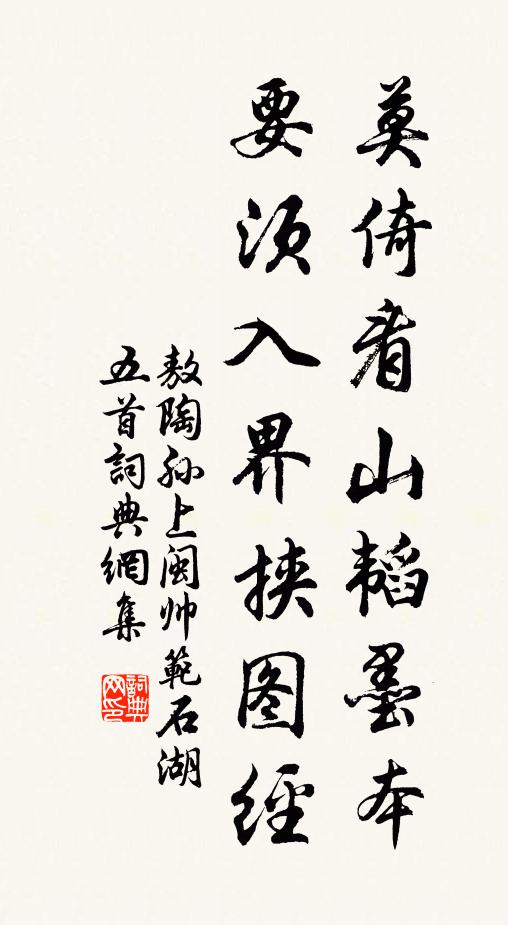 莫倚看山韬墨本
要须入界挟图经
敖陶孙上闽帅範石湖
五首詞典網集
詞典网印